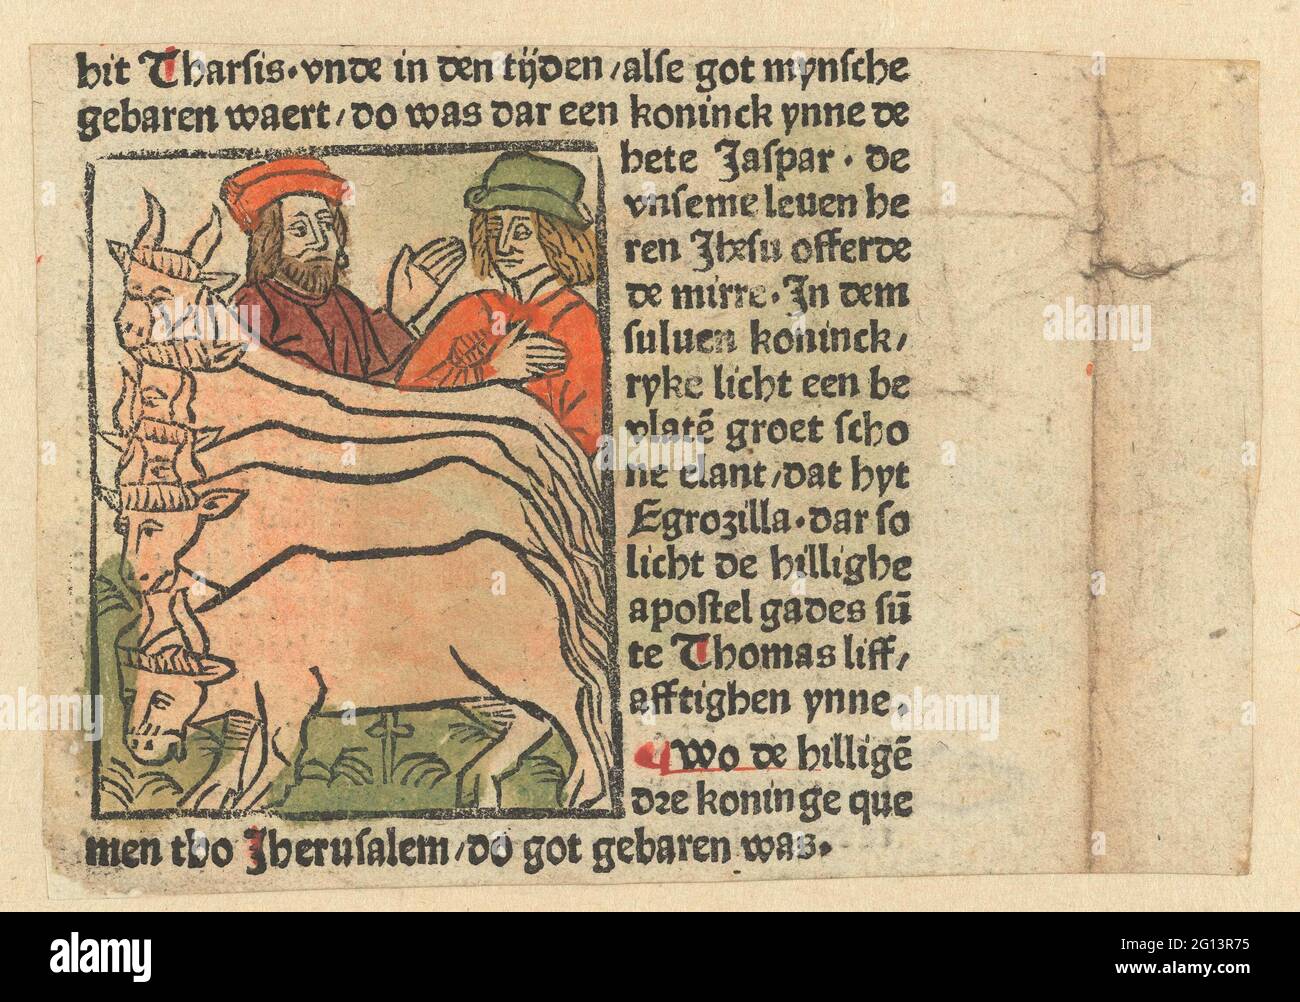 hit Tharsis. vnde in den tijden/alse got mynsche
gebaren waert/do was dar een koninck ynne de
hete Jaspar. de
vnseme leuen he
ren Jhesu offerde
de mirre. In dem
suluen koninck/
ryke licht een be
vlatē groet scho
ne elant/dat hyt
Egrozilla. dar so
licht de hillighe
apostel gades sū
te Thomas liff/
afftighen ynne.
¶ Wo de hilligē
dre koninge que
men tho Jherusalem/do got gebaren was.
alamy
alamy
Image ID: 2G13R75
www.alamy.com